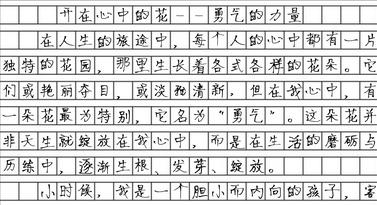 开在心中的花--勇气的力量
在人生的旅途中，每个人的心中都有一片
独特的花园，那里生长着各式各样的花朵。它
们或艳丽夺目，或淡雅清新，但在我心中，有
一朵花最为特别，它名为“勇气”。这朵花并
非天生就绽放在我心中，而是在生活的磨砺与
历练中，逐渐生根、发芽、绽放。
小时候，我是一个胆小而内向的孩子，害